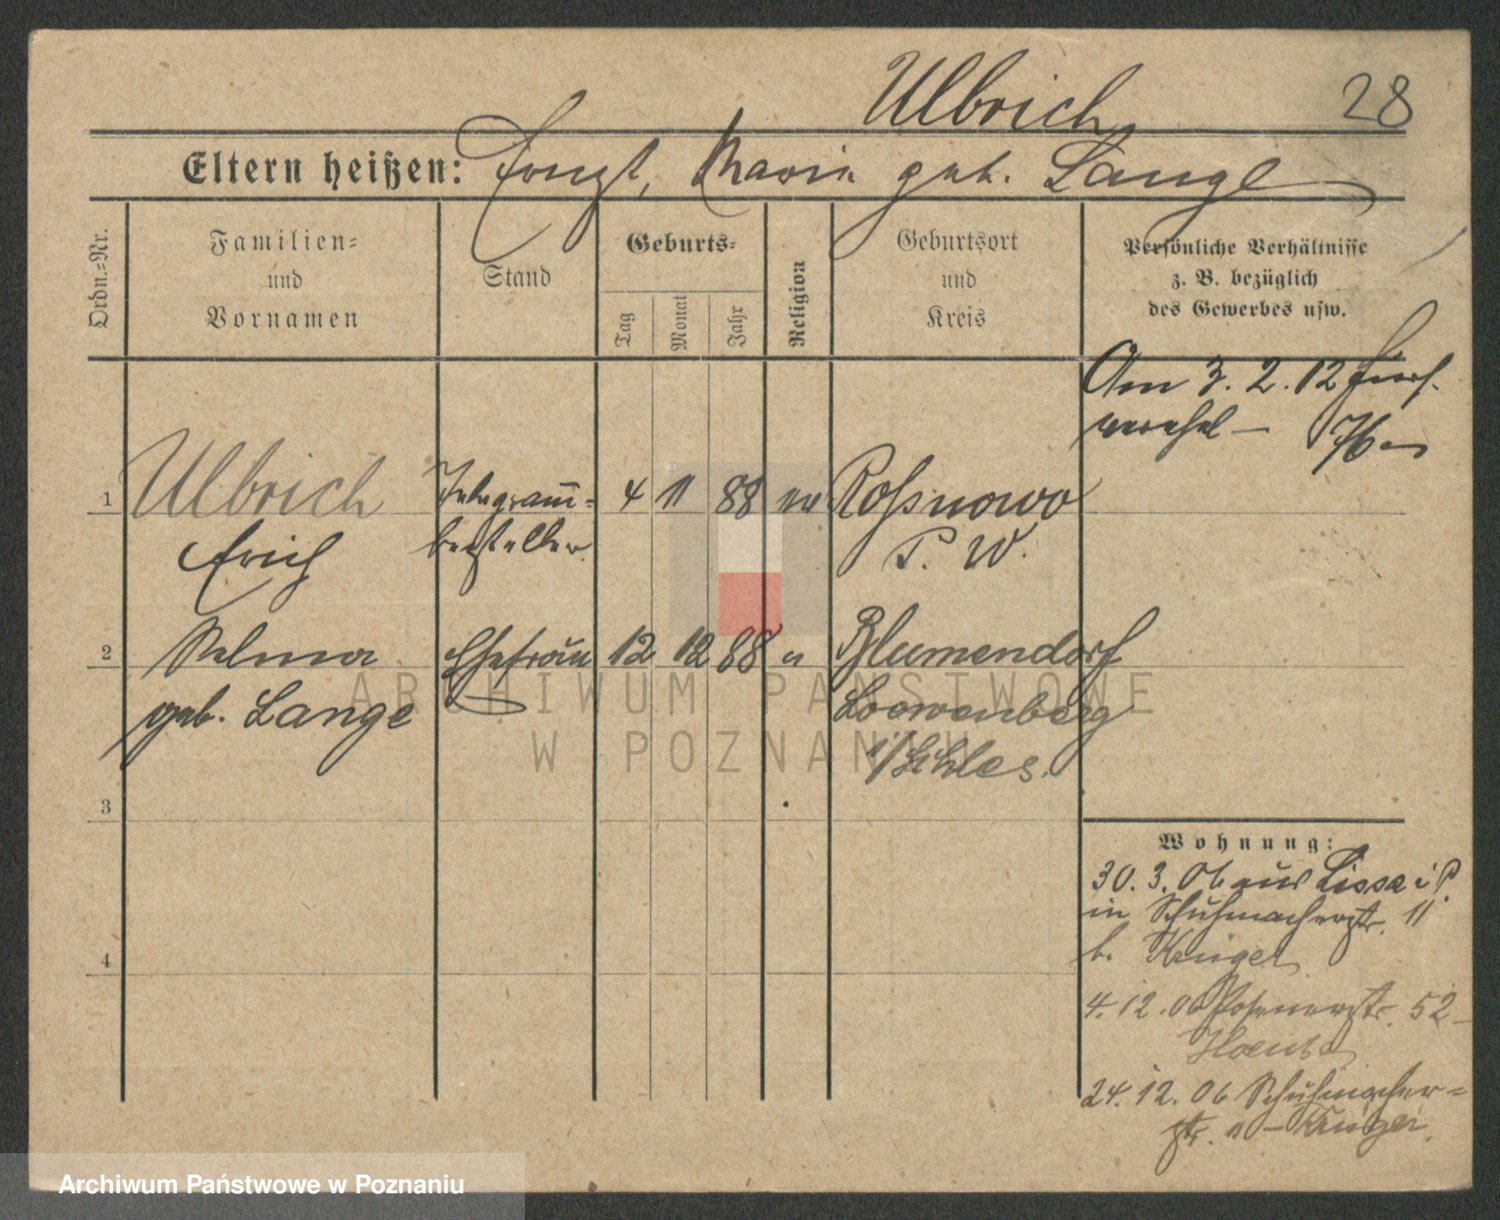 Ulbrich 28
Eltern heißen: Ernst, Maria geb. Lange
Ordn.=Nr.
Familien=
und
Vornamen
Stand
Geburts=
Tag
Monat
Jahr
Religion
Geburtsort
und
Kreis
Persönliche Verhältnisse
z. B. bezüglich
des Gewerbes usw.
Am 3. 2. 12
1 Ulbrich 4 11 88 ev Roßnowo
Erich besteller P. W.
2 Selma Ehefrau 12 12 88 " Blumendorf
geb. Lange Loewenberg
i/Schles.
3
4
Wohnung:
30. 3. 06 aus Lissa i P.
in Schuhmacherstr. 11
b. Krüger
4. 12. 06 Posenerstr. 52
24. 12. 06 Schuhmacher=
str. 11 – Krüger
ARCHIWUM PAŃSTWOWE
W POZNANIU
Archiwum Państwowe w Poznaniu